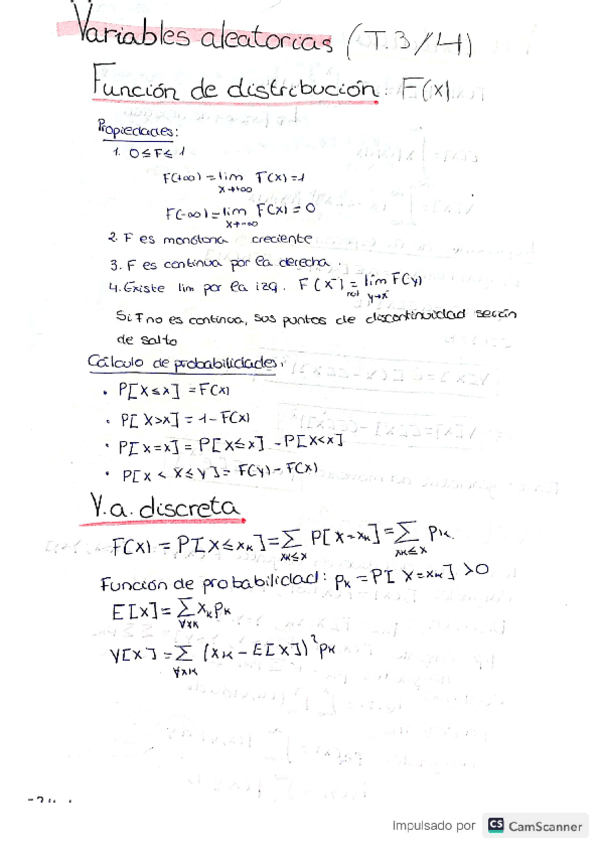 Variables aleatorias (T.3/4)
Función de distribución: F(x).
Propiedades:
1. 0≤F≤1
F(+∞) = lim F(x) = 1
x→+∞
F(-∞) = lim F(x) = 0
x→-∞
2. F es monótona creciente
3. F es continua por la derecha.
4. Existe lim por la izq. F(x⁻) = lim F(y)
not y→x⁻
Si F no es continua, sus puntos de discontinuidad serán
de salto
Cálculo de probabilidades:
• P[X≤x] = F(x)
• P[X>x] = 1-F(x)
• P[X=x] = P[X≤x] - P[X<x]
• P[x<X≤y] = F(y)-F(x)
V.a. discreta
F(x) = P[X≤xₖ] = Σ P[X=xₖ] = Σ pₖ.
xₖ≤x xₖ≤x
Función de probabilidad: pₖ = P[X=xₖ] >0
E[X] = Σ xₖpₖ
∀xₖ
V[X] = Σ (xₖ - E[X])² pₖ
∀xₖ
Impulsado por CS CamScanner